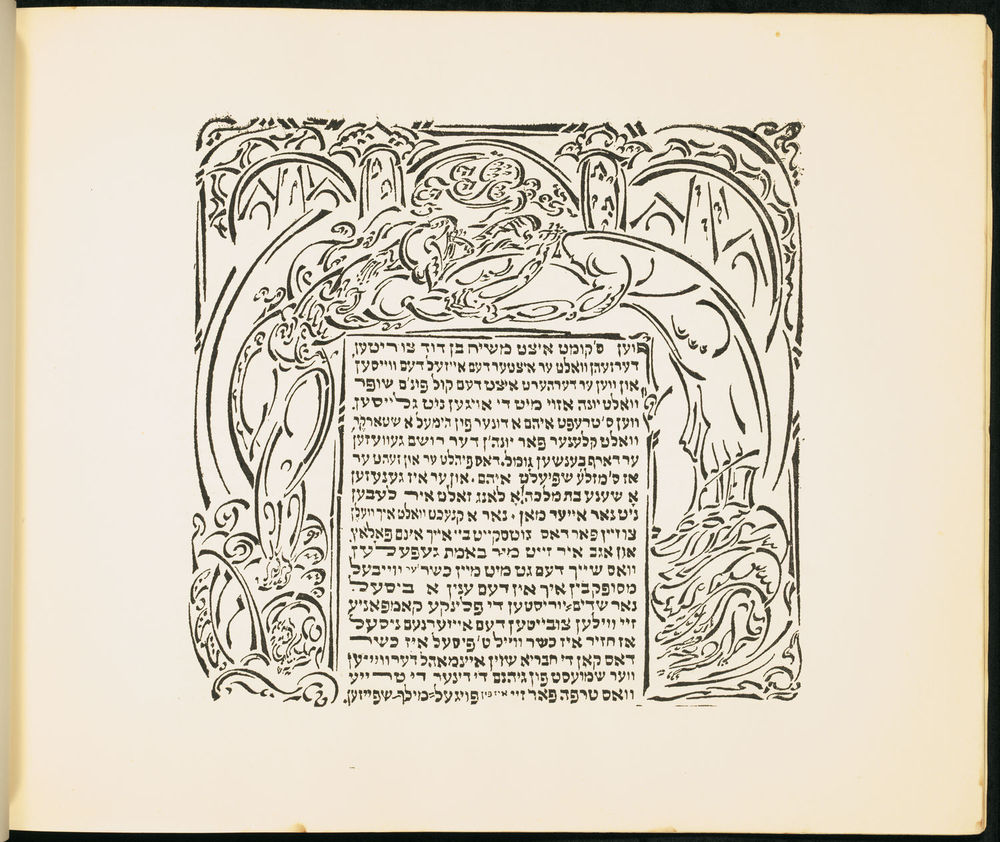 ווען ס'קומט איצט משיח בן דוד צו רײטען,
דערזעהן וואלט ער איצטער דעם אײזעל דעם ווײסען
און ווען ער דערהערט איצט דעם קול פונ'ם שופר
וואלט יונה אזוי מיט די אויגען ניט גלײסען.
ווען ס'טרעפט איהם א דונער פון הימעל א שטארקער,
וואלט קלענער פאר יונה'ן דער רושם געוועזען
ער דארף בענשען גומל. דאס פיהלט ער און זעהט ער
אז ס'מזל'ע שפיעלט איהם. און ער איז גענעזען
א שענע בת מלכה! א לאנג זאלט איר לעבען
ניט נאר אײער מאן. נאר א קנעכט וואלט איך וועלן
צו זײן פאר דאס נוטסקײט בײ אײך אינם פאלאץ,
און אגב איר זײט מיר באמת געפעלען
וואס שײך דעם גט מיט מײן כשר'ער ווײבעל
מסופק בין איך אין דעם ענין א ביסעל.
נאר שדים־יוריסטען די פלינקע קאמפאניע
זײ ווילען צובײטען דעם אײזערנעם ניסעל
אז חזיר איז כשר ווײל ט'פיסעל איז כשר
דאס קאן די חבריא שוין אײנמאהל דערווײזען
ווער שמועסט פון גיהנם די דינער די טרײע
וואס טרפה פאר זײ איז פון פויגעל־מילך־שפײזען.